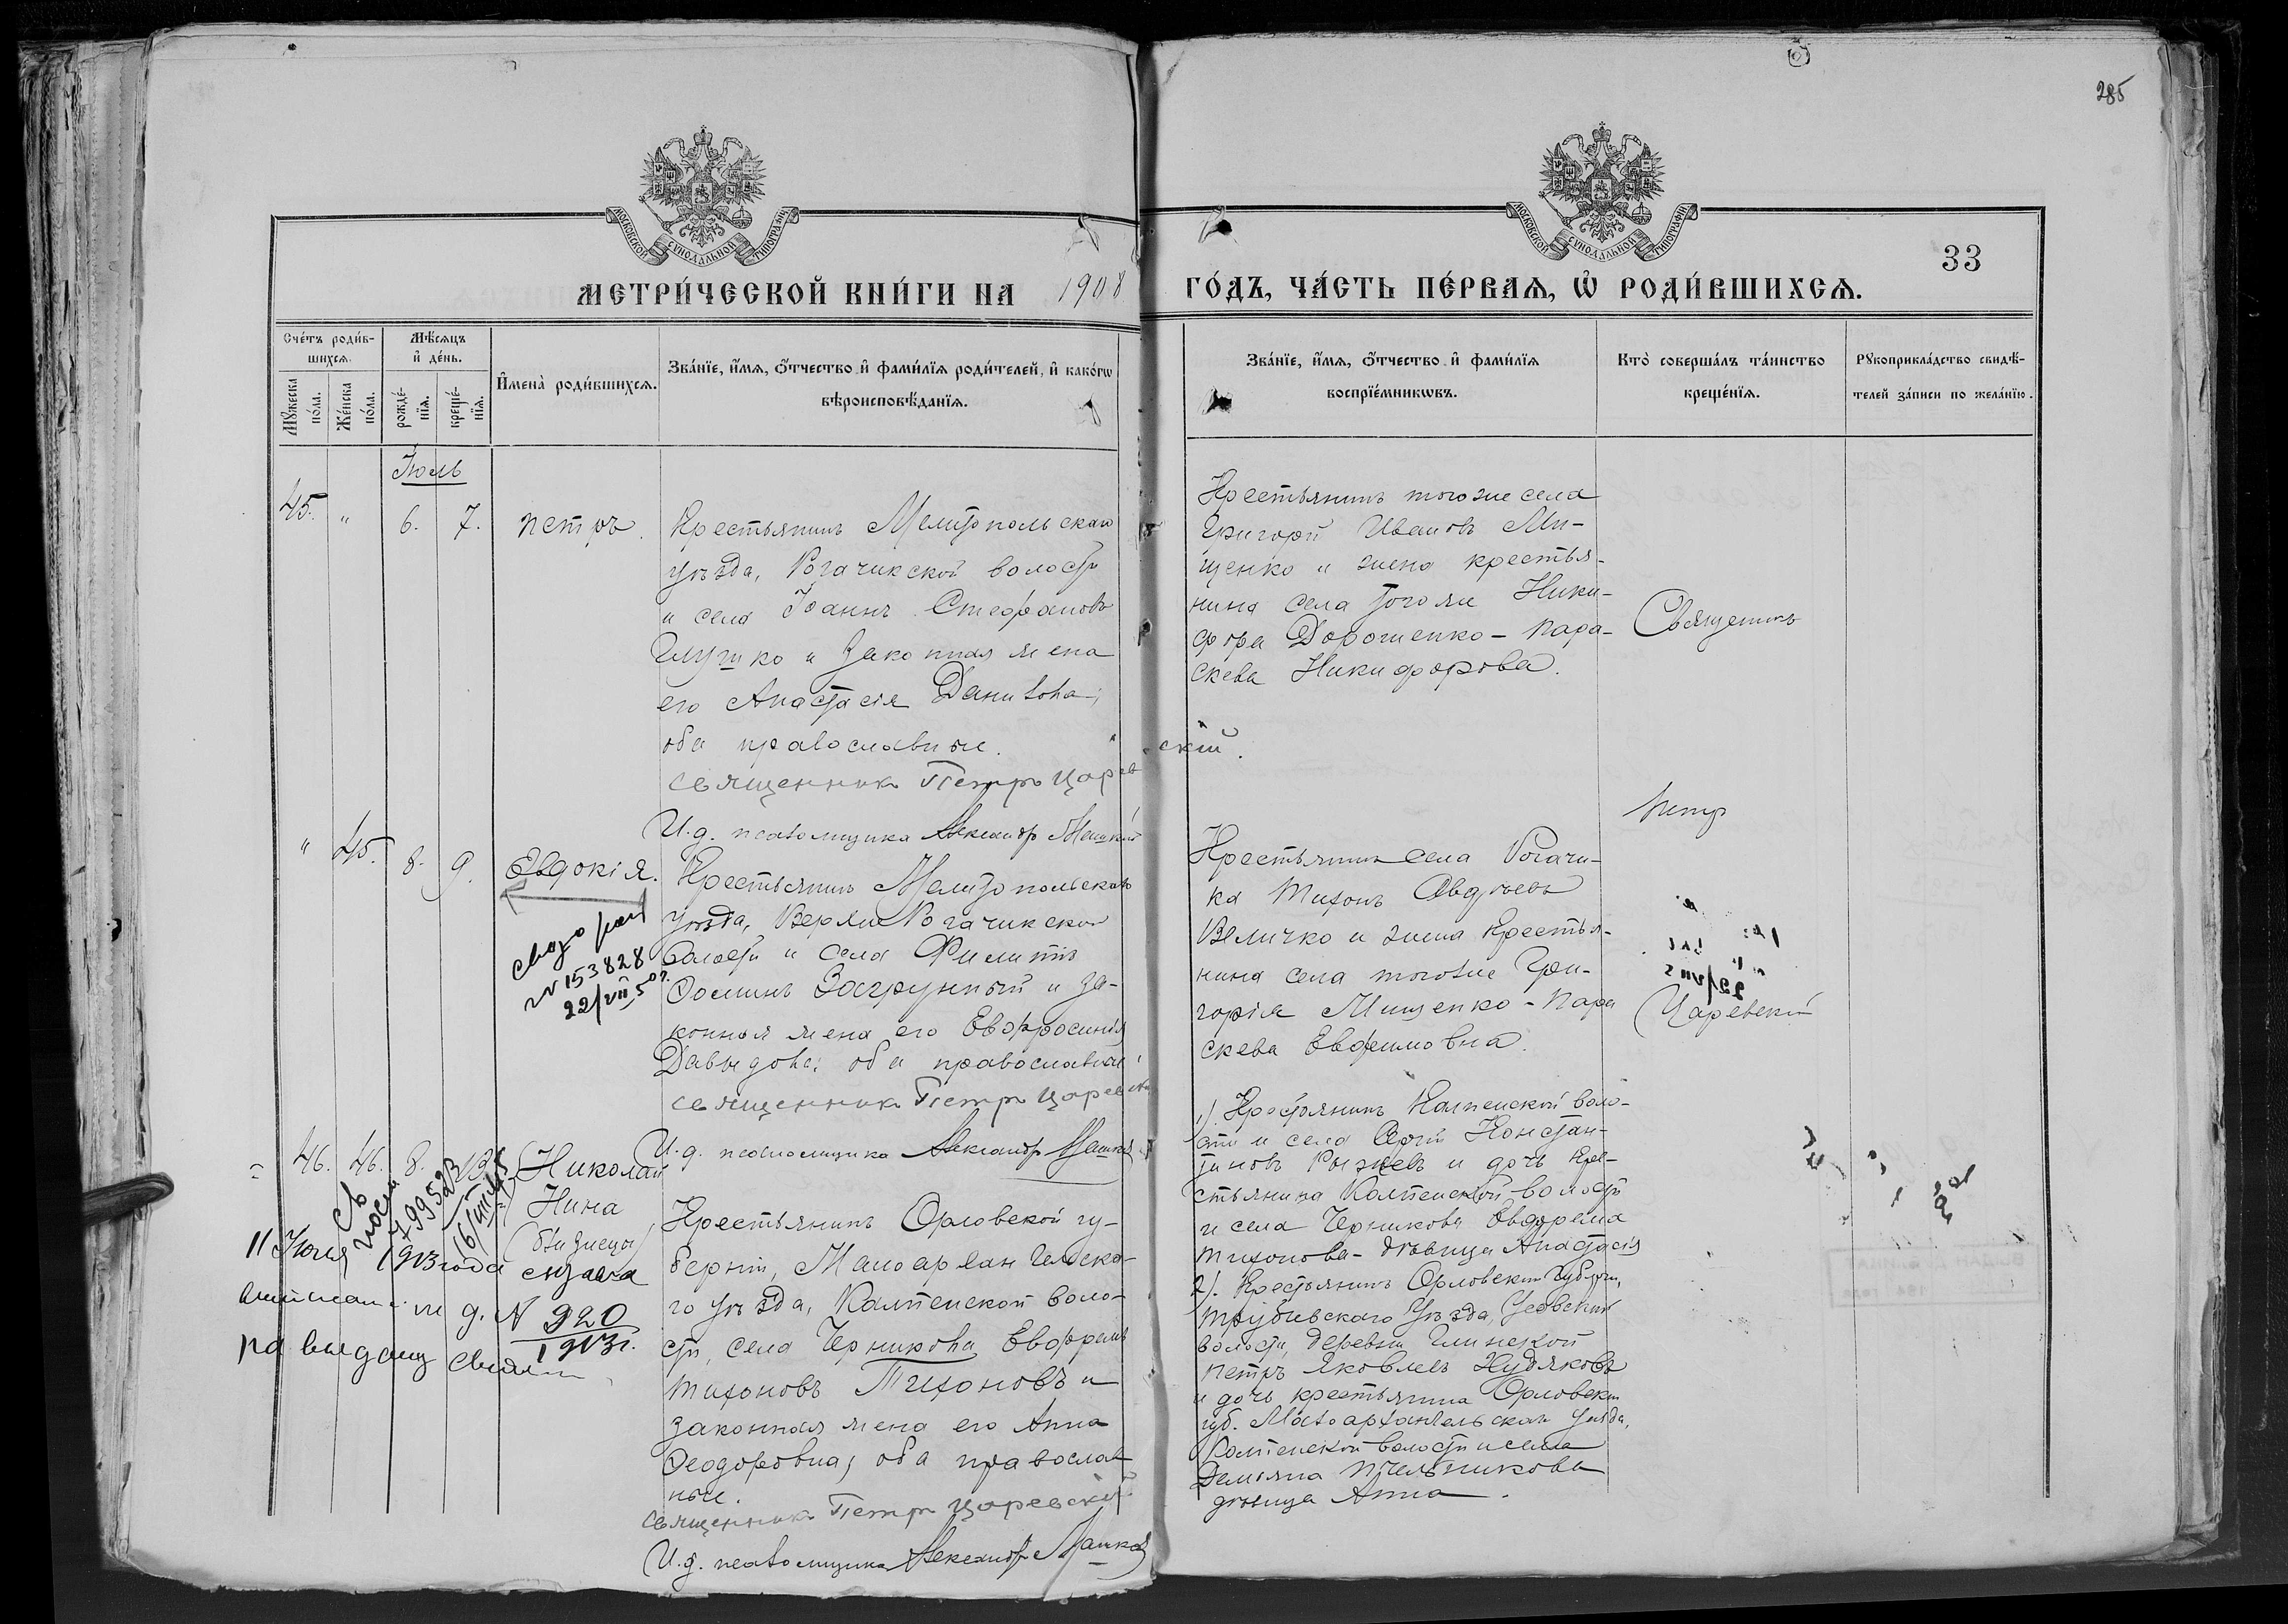 285
МОСКОВСКОЙ СѴНОДАЛЬНОЙ ТИПОГРАФІИ
МОСКОВСКОЙ СѴНОДАЛЬНОЙ ТИПОГРАФІИ
33
МЕТРИ́ЧЕСКОЙ КНИ́ГИ НА 1908
ГО́ДЪ, ЧА́СТЬ ПЕ́РВАЯ, Ѡ҆ РОДИ́ВШИХСЯ.
Сче́тъ роди́в-
шихся.
Мꙋ́жеска по́ла.
Же́нска по́ла.
Мѣ́сяцъ
и҆ де́нь.
рожде́-
нїя.
креще́-
нїя.
И҆мена̀ роди́вшихся.
Зва́нїе, и҆́мя, ѻ҆́тчество и҆ фами́лїя роди́телей, и҆ како́гѡ
вѣроисповѣ́данїя.
Зва́нїе, и҆́мя, ѻ҆́тчество и҆ фами́лїя
воспрїе́мникѡвъ.
Кто̀ соверша́лъ та́инство
креще́нїя.
Рꙋкоприкла́дство свидѣ́-
телей за́писи по жела́нїю.
Іюль
45. " 6. 7. Петръ.
Крестьянинъ Мелитопольскаго
уѣзда, Рогачикской волости
и села Іоаннъ Стефановъ
Глушко и законная жена
его Анастасія Данилова;
оба православные.
священникъ Петръ Царевскій.
И.д. псаломщика Александръ
Крестьянинъ тогоже села
Григорій Ивановъ Ми-
щенко и жена крестья-
нина села тогоже Ники-
фора Дорошенко - Пара-
скева Никифорова.
Священникъ
" 45. 8. 9. Евдокія.
свид
N 153828
22/VII 50г.
Крестьянинъ Мелитопольскаго
уѣзда, Верхне Рогачикской
волости и села Филиппъ
Ѳоминъ Загрунный и за-
конная жена его Евфросинія
Давыдова; оба православные
священникъ Петръ Царевскій
И.д. псаломщика Александръ
Крестьянинъ села Рогачи-
ка Тихонъ Авдѣевъ
Величко и жена крестья-
нина села тогоже Гри-
горія Мищенко - Пара
скева Евфимовна.
Петръ
Царевскій
46. 46. 8. 13.
Николай
Нина
(близнецы)
11 Іюля 1913 года
N 920
1913г.
на выдачу
Крестьянинъ Орловской гу-
берніи, Малоархангельска-
го уѣзда, Колпенской воло-
сти, села Черникова Евфремъ
Тихоновъ Тихоновъ и
законная жена его Анна
Ѳеодоровна; оба православ
ные.
священникъ Петръ Царевскій
И.д. псаломщика Александръ
1). Крестьянинъ Колпенской воло-
сти и села Констан-
тиновъ и дочь кре-
стьянина Колпенской волости
и села Черникова Евфрема
Тихонова - дѣвица Анастасія
2). Крестьянинъ Орловской губерніи,
Трубчевскаго уѣзда,
волости, деревни Глинской
Петръ Яковлевъ Худяковъ
и дочь крестьянина Орловской
губ. Малоархангельскаго уѣзда,
Колпенской волости и села
Демьяна Пчельникова
дѣвица Анна.